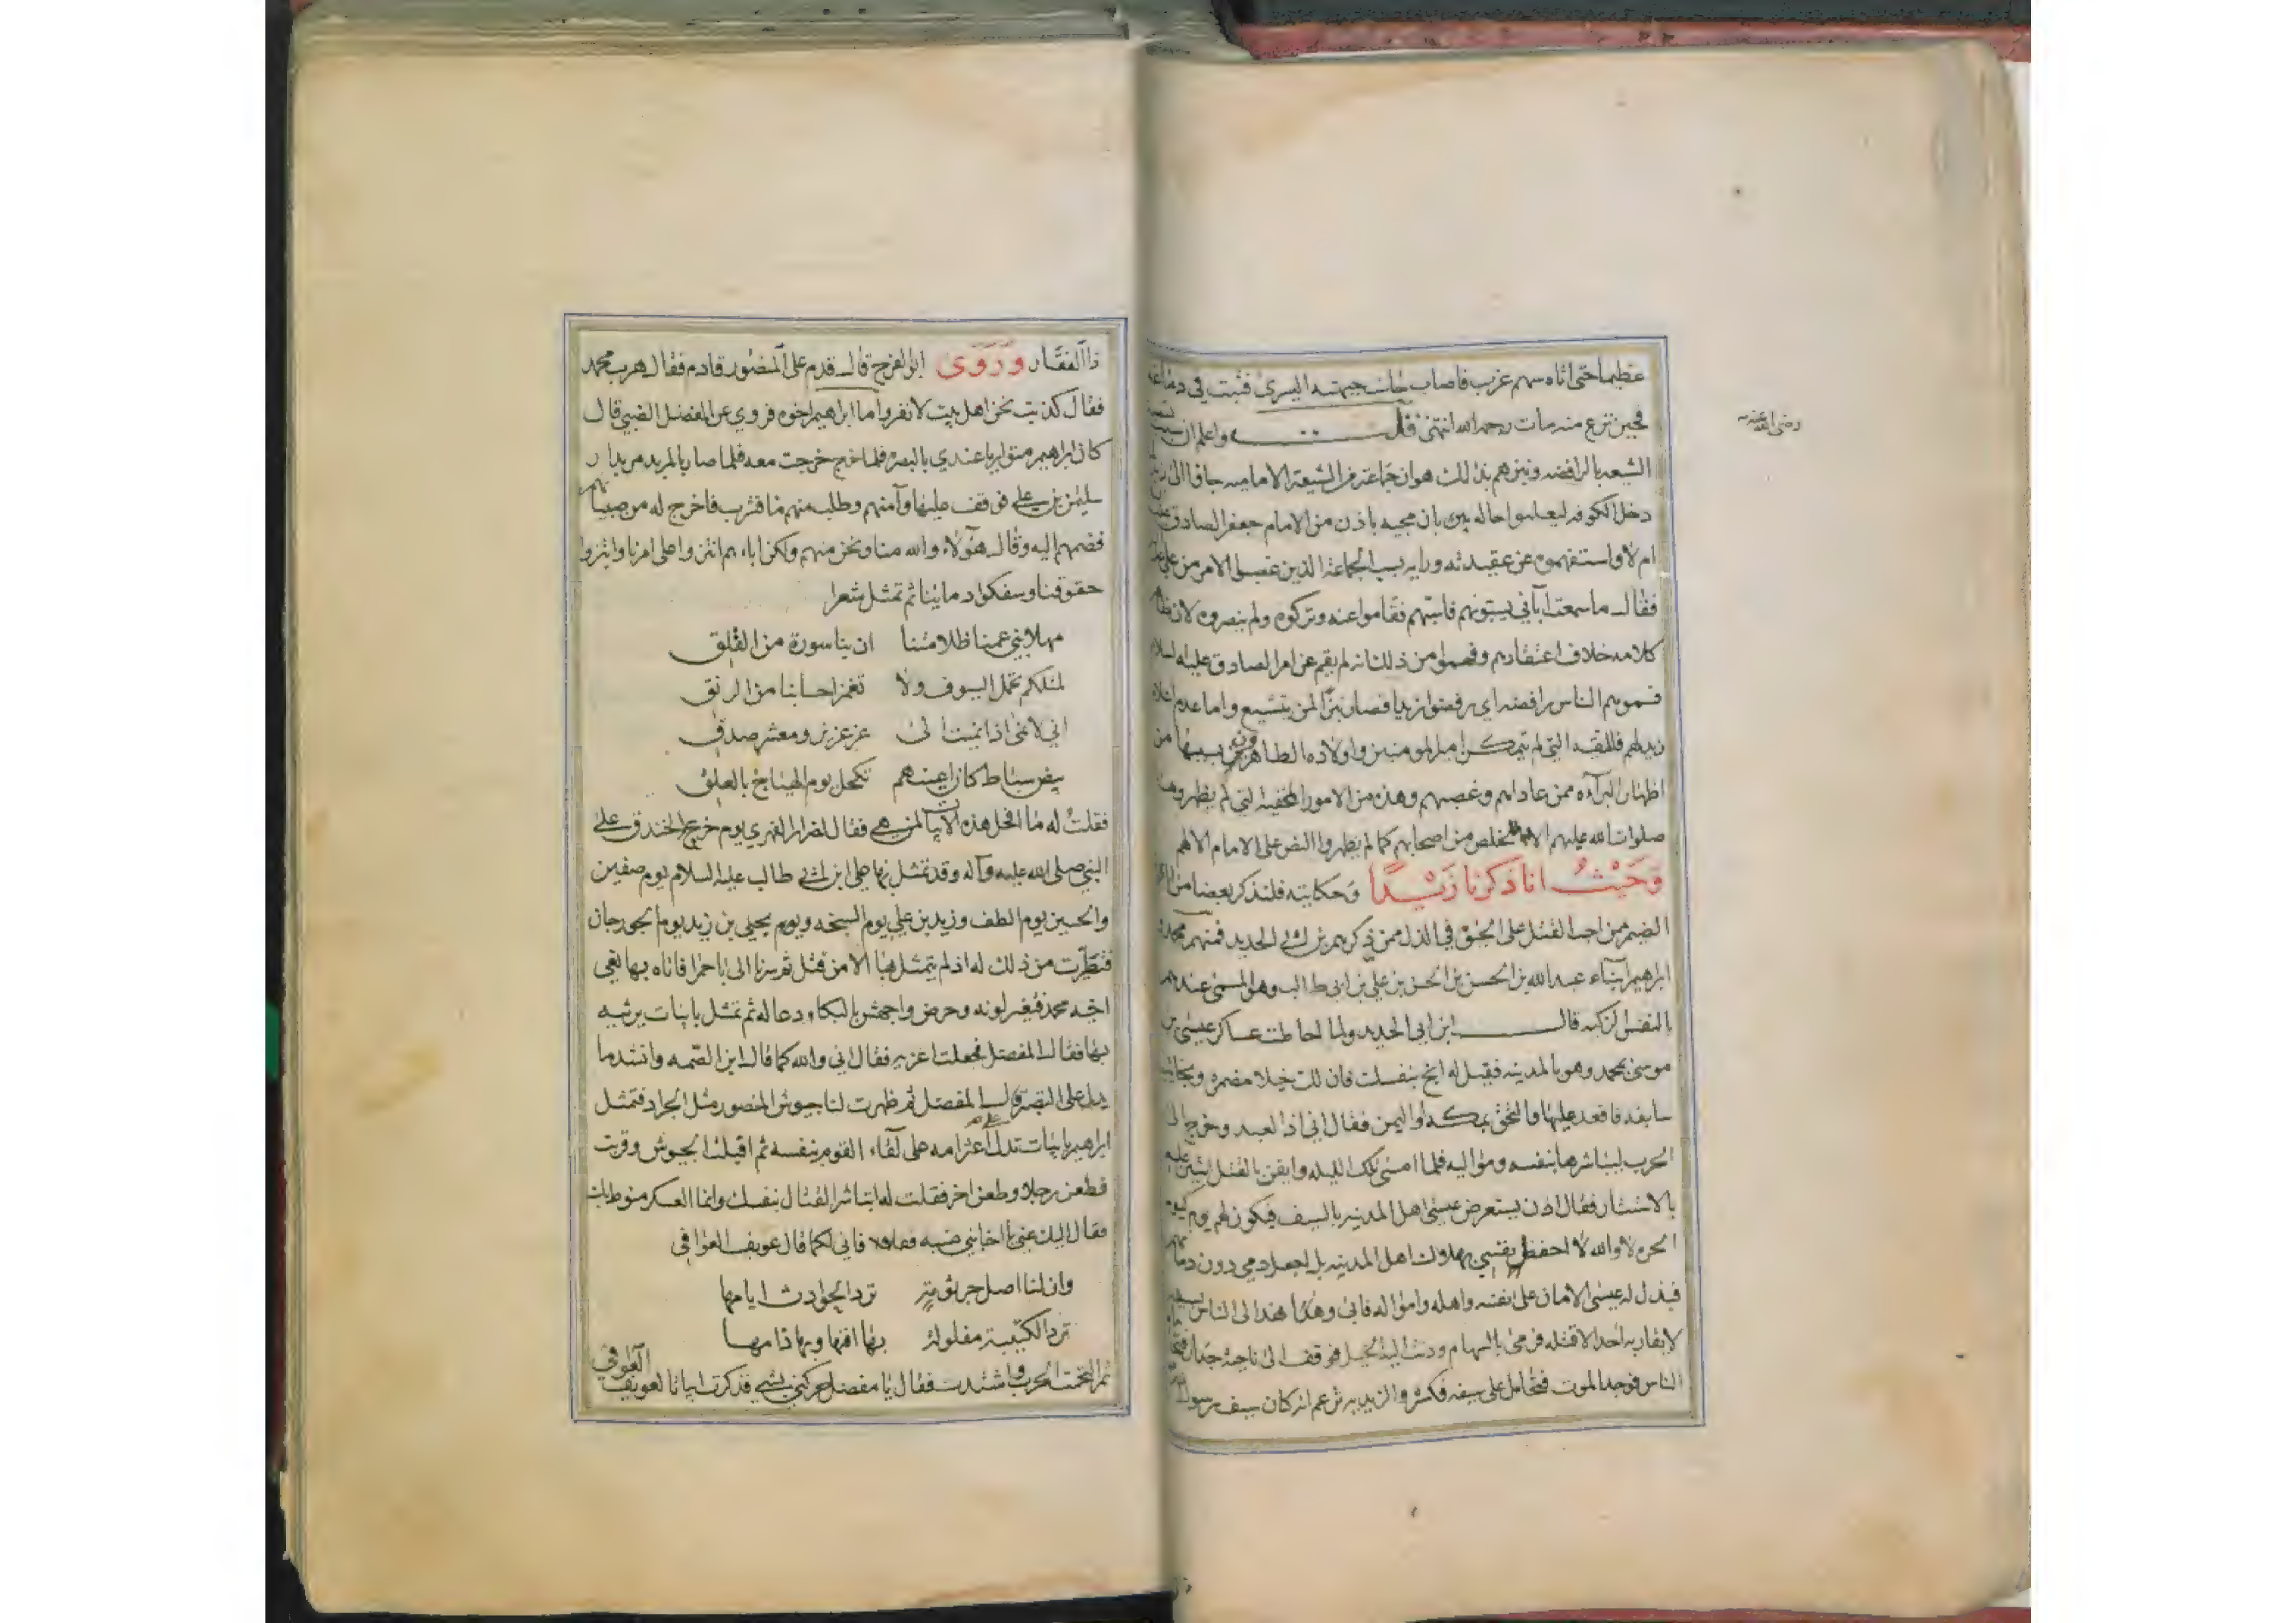 عظيما حتى اتاه سهم غرب فاصاب جانب جبهته اليسرى فثبت في دماغه
فحين نزع منه مات رحمه الله انتهى واعلم ان
رضي الله عنه
الشيعه بالرافضه ونبزهم بذلك هو ان جماعة من الشيعة الاماميه جاؤا الى
دخل الكوفه ليعلموا حاله بان مجيه باذن من الامام جعفر الصادق
ام لا واستفهموه عن عقيدته ورايه بسب الجماعة الذين غصبوا الامر من علي
فقال ما سمعت آبائي يسبونهم فاسبهم فقاموا عنه وتركوه ولم ينصروه لان
كلامه خلاف اعتقادهم وفهموا من ذلك انه لم يقم عن امر الصادق عليه السلام
فسموهم الناس رافضه اي رفضوا زيدا فصار نبزا لمن يتشيع واما عدم
زيد لهم فللتقيه التي لم يتمكن امير المومنين واولاده الطاهرون بسببها من
اظهار البرآءه ممن عاداهم وغصبهم وهذه من الامور الخفية التي لم يظهروها
صلوات الله عليهم الا لمخلص من اصحابهم كما لم يظهروا النص على الامام الا لهم
وَحَيْثُ انا ذكرنا زَيْدًا وحكايته فلنذكر بعضا من
الضيم ممن احب القتل على الذل ممن ذكرهم ابن ابي الحديد فمنهم محمد
ابراهيم ابناء عبد الله بن الحسن بن الحسن بن علي بن ابي طالب وهو المسمى عندهم
بالنفس الزكيه قال ابن ابي الحديد ولما احاطت عساكر عيسى بن
موسى بمحمد وهو بالمدينه فقيل له انج بنفسك فان لك خيلا مضمره ونجائب
سابقه فاقعد عليها والتحق بمكه او اليمن فقال اني اذا لعبد وخرج الى
الحرب ليباشرها بنفسه ومواليه فلما امسى تلك الليله وايقن بالقتل اشير عليه
بالاستتار فقال اذن يستعرض عيسى اهل المدينه بالسيف فيكون لهم يوم كيوم
الحره لا والله لا احفظ نفسي بهلاك اهل المدينه بل اجعل دمي دون دمائهم
فبذل له عيسى الامان على نفسه واهله وامواله فابى الى الناس بسيفه
لا يقاربه احد الا قتله فرمي بالسهام ودنت اليه الخيل فوقف الى ناحية جدار
الناس فوجد الموت فتحامل على سيفه فكسره والزيديه تزعم انه كان سيف رسول
ذا الفقار وَرَوَى ابو الفرج قال قدم على المنصور قادم فقال هرب محمد
فقال كذبت نحن اهل بيت لا نفر واما ابراهيم اخوه فروي عن المفضل الضبي قال
كان ابراهيم متواريا عندي بالبصره فلما خرج خرجت معه فلما صار بالمربد مر بدار
سليمن بن علي فوقف عليها وآمنهم وطلب منهم ما فشرب فاخرج له من صبيانهم
فضمهم اليه وقال هؤلاء والله منا ونحن منهم ولكن اباءهم امرنا وابتزوا
حقوقنا وسفكوا دمائنا ثم تمثل شعرا
مهلا بني عمنا ظلامتنا ان بنا سورة من القلق
لمثلكم تحمل السيوف ولا تغمز احسابنا من الرنق
اني لانمى اذا انتميت الى عز عزيز ومعشر صدق
بيض سباط كان اعينهم تكحل يوم الهياج بالعلق
فقلت له ما افحل هذه الابيات لمن هي فقال لضرار الفهري يوم الخندق على
النبي صلى الله عليه وآله وقد تمثل بها علي ابن ابي طالب عليه السلام يوم صفين
والحسين يوم الطف وزيد بن علي يوم السبخه ويوم يحيى بن زيد يوم الجورجان
فتطيرت من ذلك له اذ لم يتمثل بها الا من قتل ثم سرنا الى باخمرا فاتاه بها نعي
اخيه محمد فتغير لونه وحرض واجهش بالبكاء ودعا له ثم تمثل بابيات يرثيه
بها فقال المفضل فجعلت اعزيه فقال اني والله كما قال ابن الصمه وانشد ما
يدل على قال المفضل ثم ظهرت لنا جيوش المنصور مثل الجراد فتمثل
ابراهيم بابيات تدل على اعتزامه على لقاء القوم بنفسه ثم اقبلت الجيوش وقربت
فطعن رجلا وطعن اخر فقلت له اتباشر القتال بنفسك وانما العسكر منوط بك
فقال اليك عني يا اخا بني ضبه فاني لكما قال عويف القوافي
وان لنا اصل جرثومة ترد الحوادث ايامها
ترد الكتيبة مفلولة بها افنها وبها ذامها
ثم التحمت الحرب واشتدت فقال يا مفضل حركني بشي فذكرت ابياتا لعويف القوافي